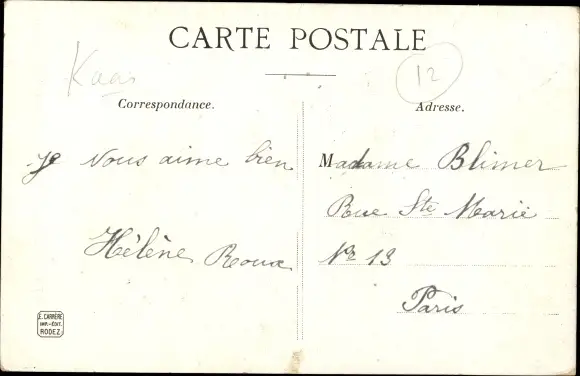 CARTE POSTALE
Kaas
12
Correspondance.
Je vous aime bien
Hélène Roux
Adresse.
Madame Blimer
Rue Ste Marie
Nr 13
Paris
E. CARRÈRE
IMP.-ÉDIT.
RODEZ